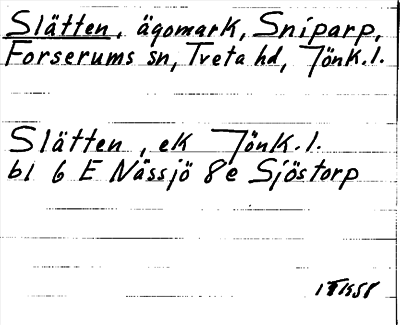 Slätten, ägomark, Sniparp,
Forserums sn, Tveta hd, Jönk.l.
Slätten, ek Jönk.l.
bl 6 E Nässjö 8e Sjöstorp